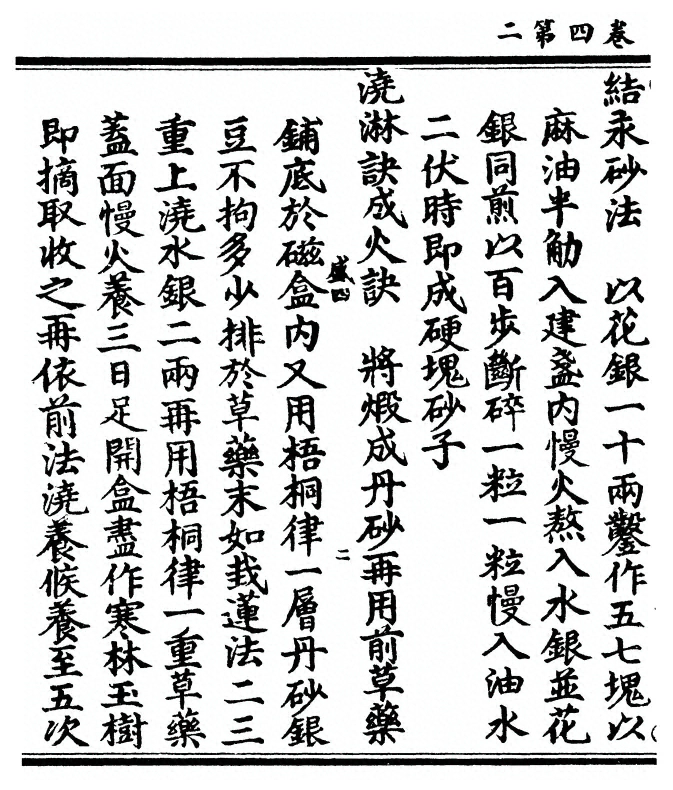 卷四第二
結汞砂法　以花銀一十兩鑿作五七塊以
麻油半觔入建盞內慢火熬入水銀並花
銀同煎以百步斷碎一粒一粒慢入油水
二伏時即成硬塊砂子
澆淋訣成火訣　將煅成丹砂再用前草藥
盛四
二
鋪底於磁盒內又用梧桐律一層丹砂銀
豆不拘多少排於草藥末如栽蓮法二三
重上澆水銀二兩再用梧桐律一重草藥
蓋面慢火養三日足開盒盡作寒林玉樹
即摘取收之再依前法澆養候養至五次